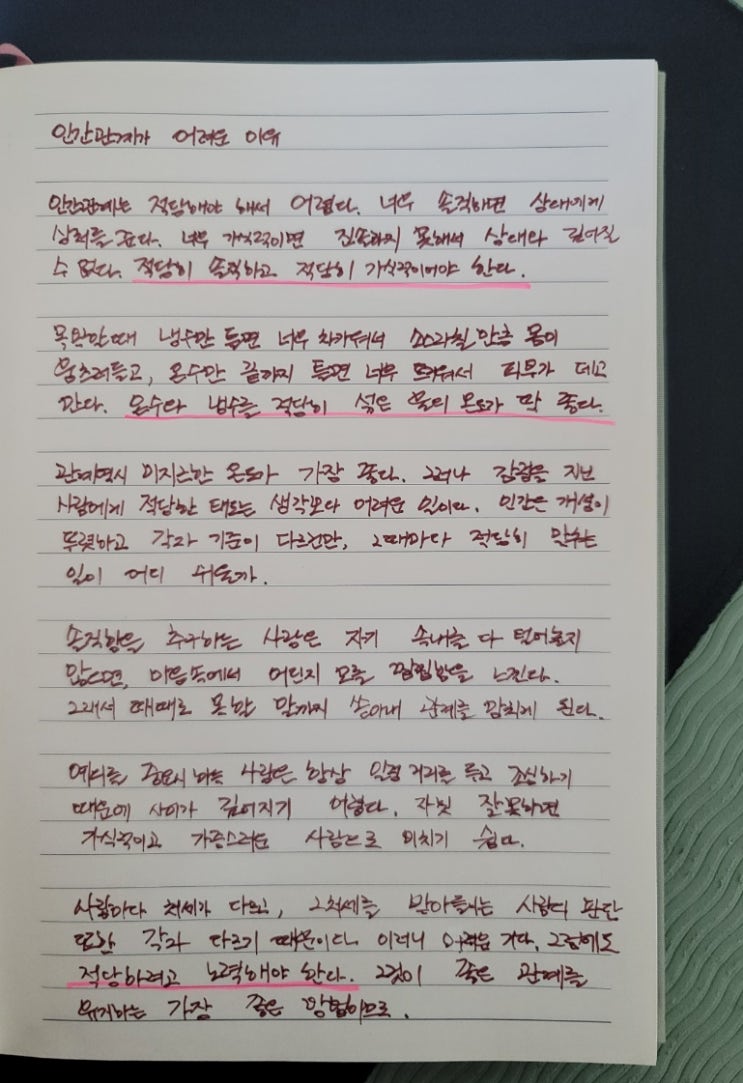 인간관계가 어려운 이유
인간관계는 적당해야 해서 어렵다. 너무 솔직하면 상대에게
상처를 준다. 너무 가식적이면 진솔하지 못해서 상대와 깊어질
수 없다. 적당히 솔직하고 적당히 가식적이어야 한다.
목욕할 때 냉수만 틀면 너무 차가워서 소스라칠 만큼 몸이
움츠러들고, 온수만 끝까지 틀면 너무 뜨거워서 피부가 데고
만다. 온수와 냉수를 적당히 섞은 물의 온도가 딱 좋다.
관계역시 미지근한 온도가 가장 좋다. 그러나 감정을 지닌
사람에게 적당한 태도는 생각보다 어려운 일이다. 인간은 개성이
뚜렷하고 각자 기준이 다르건만, 그때마다 적당히 맞추는
일이 어디 쉬울까.
솔직함을 추구하는 사람은 자기 속내를 다 털어놓지
않으면, 마음속에서 어딘지 모를 껄끄러움을 느낀다.
그래서 때때로 못할 말까지 쏟아내 관계를 망치게 된다.
예의를 중요시 여기는 사람은 항상 일정 거리를 두고 조심하기
때문에 사이가 깊어지기 어렵다. 자칫 잘못하면
가식적이고 가증스러운 사람으로 비치기 쉽다.
사람마다 처세가 다르고, 그 처세를 받아들이는 사람의 판단
또한 각자 다르기 때문이다. 이러니 어려운 거다. 그럼에도
적당하려고 노력해야 한다. 그것이 좋은 관계를
유지하는 가장 좋은 방법이므로.